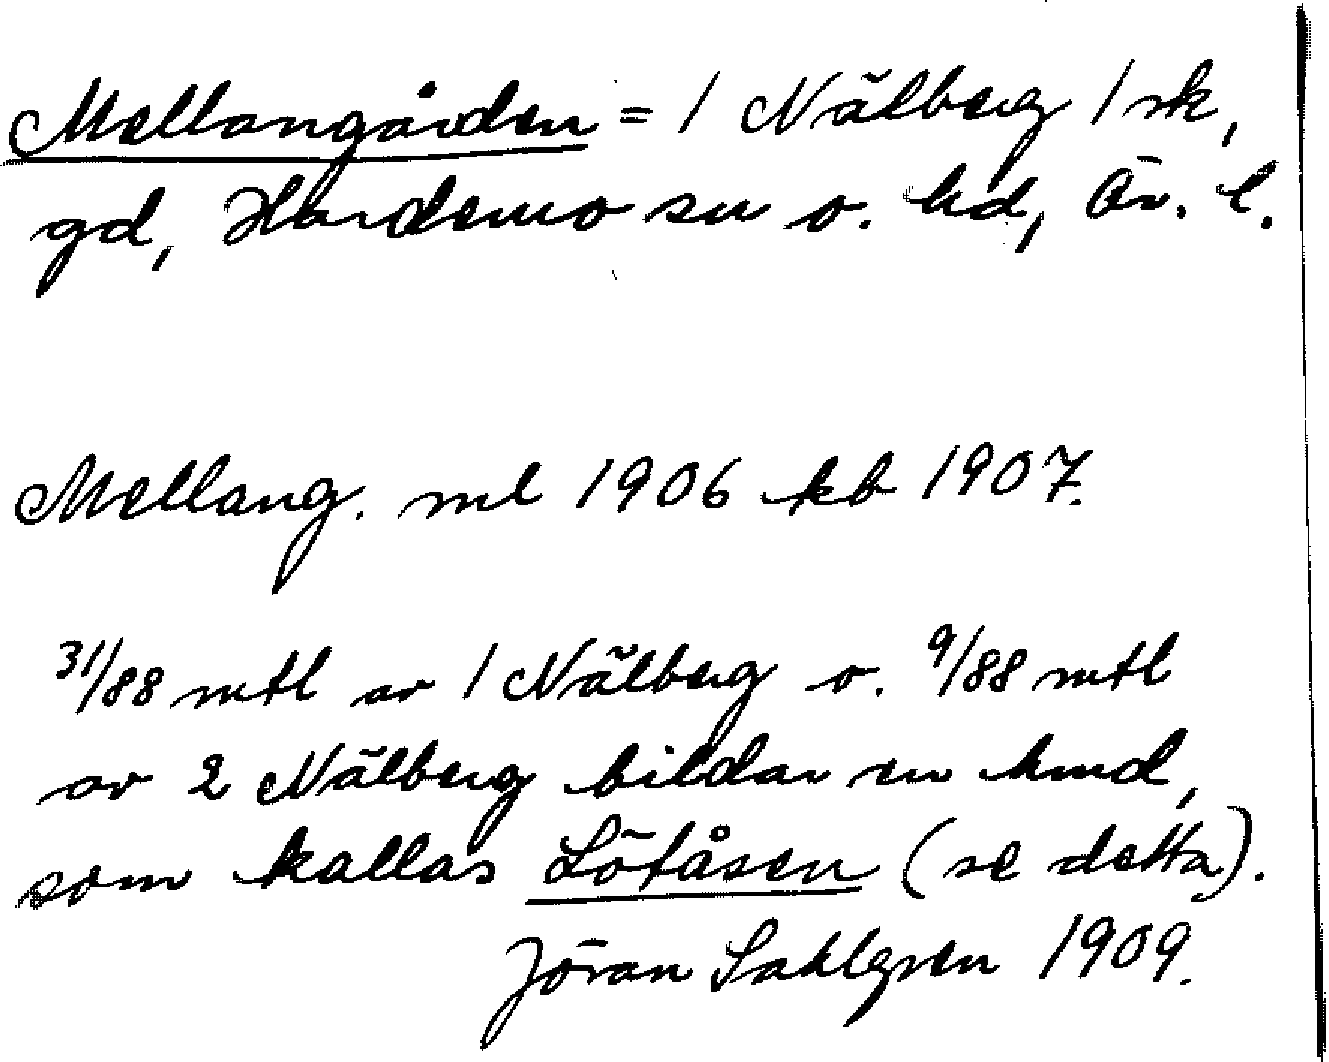 Mellangården = 1 Nälberg 1 sk,
gd, Hardemo sn o. hd, Ör. l.
Mellang. ml 1906 kb 1907.
31/88 mtl av 1 Nälberg o. 9/88 mtl
av 2 Nälberg bildar en hmd,
som kallas Lötåsen (se detta).
Jöran Sahlgren 1909.